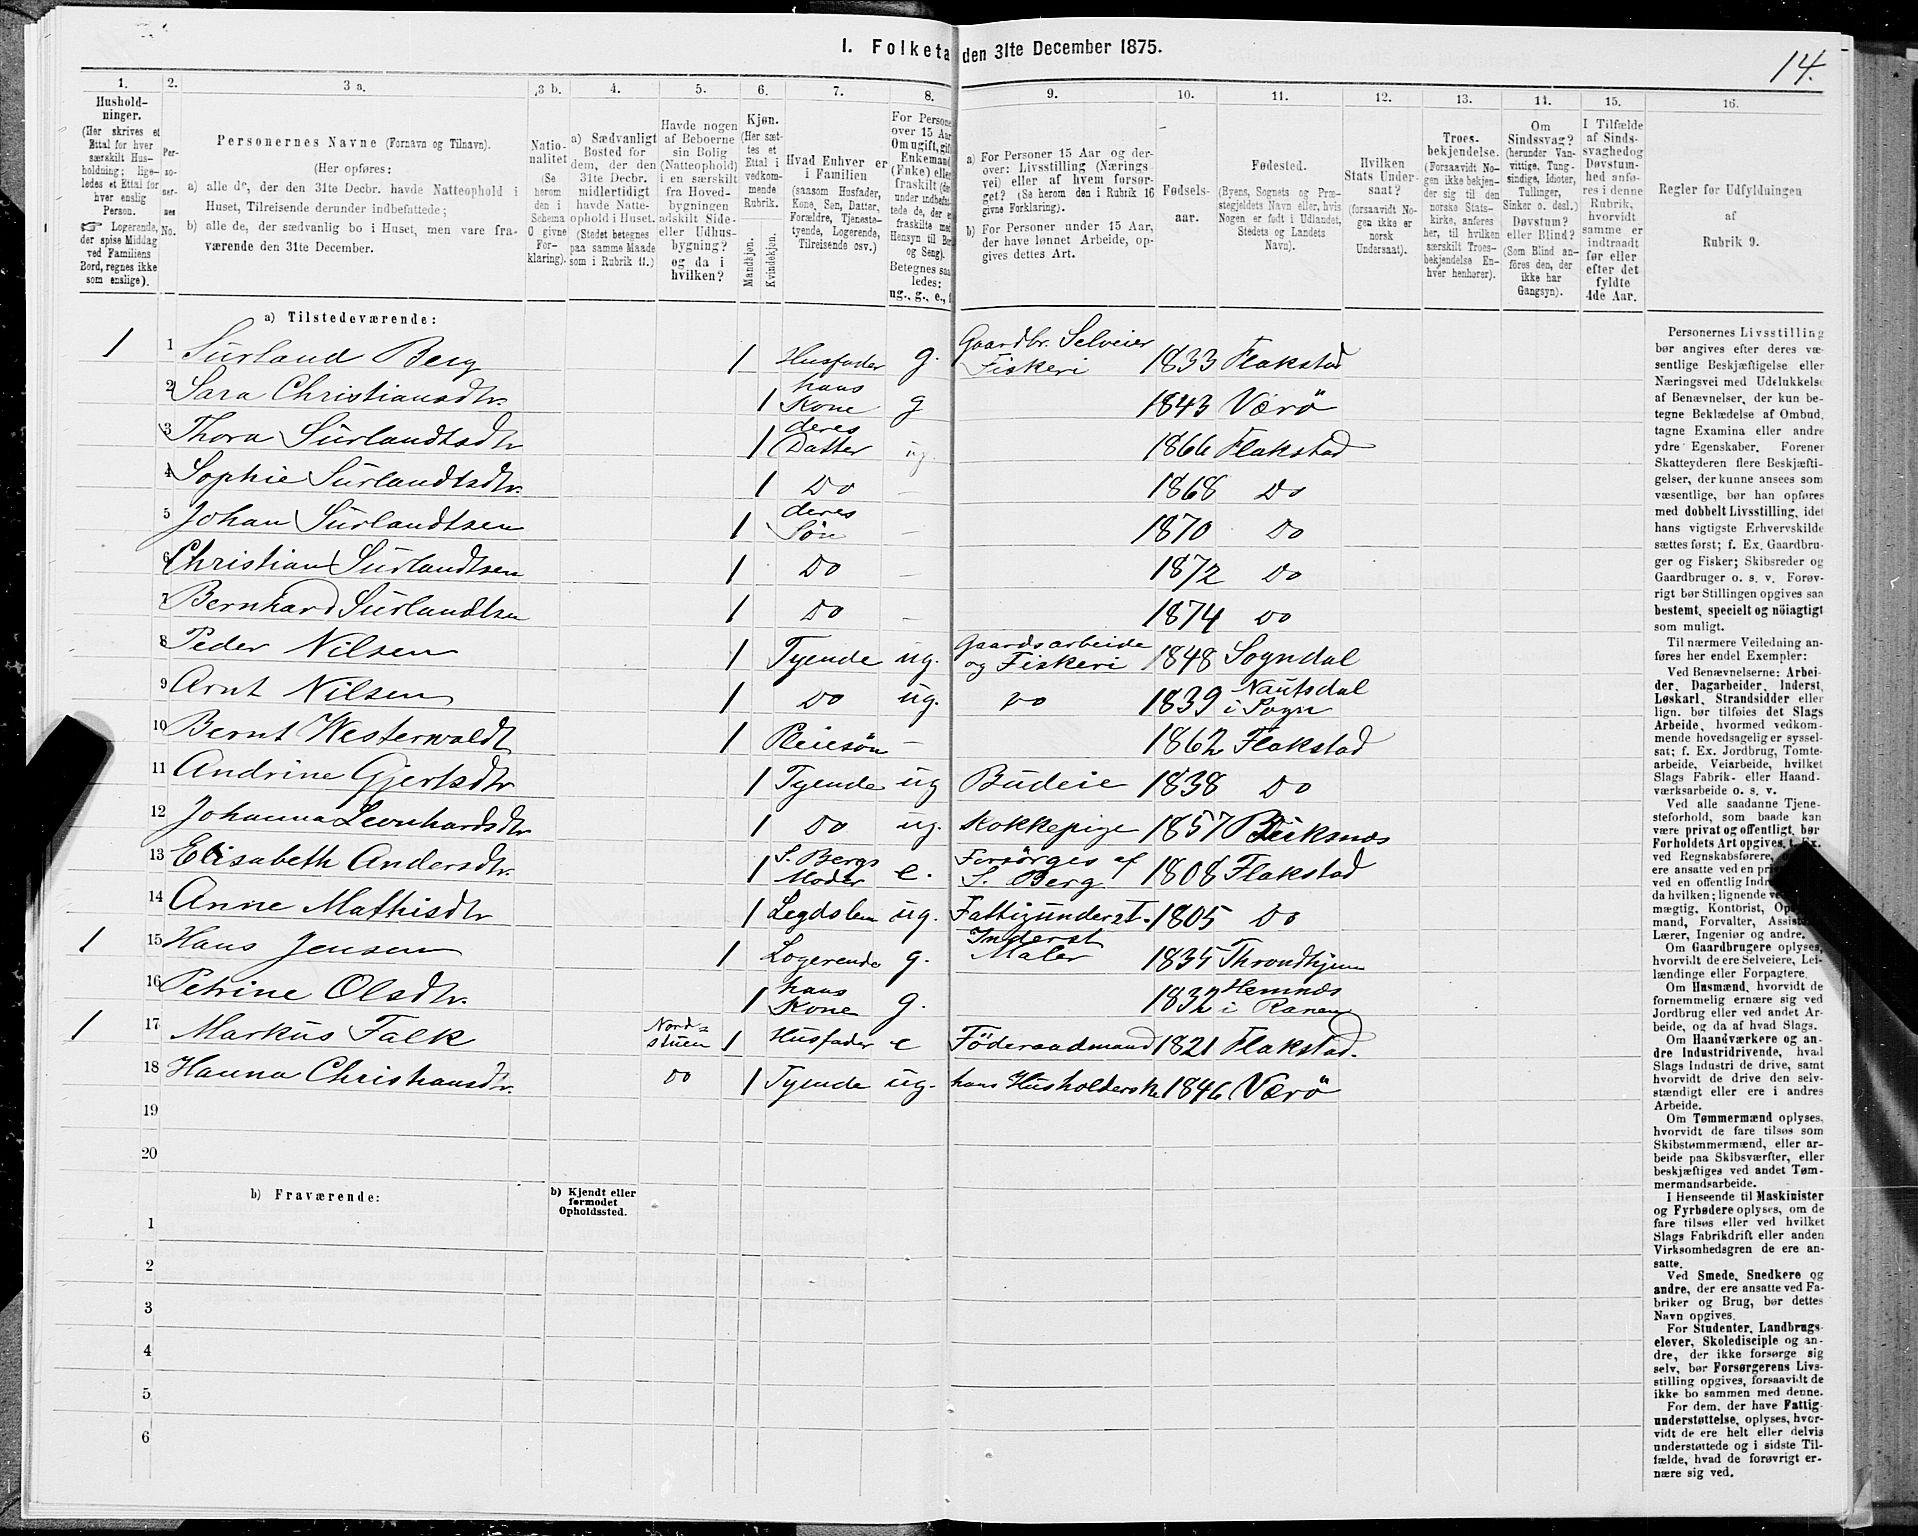 I. Folketa den 31te December 1875.
14.
1. 2. 3 a. 3 b. 4. 5. 6. 7. 8. 9. 10. 11. 12. 13. 14. 15. 16.
Hushold-
ninger.
(Her skrives et
Ettal for hver
særskilt Hus-
holdning; lige-
ledes et Ettal for
hver enslig
Person.
☞ Logerende,
der spise Middag
ved Familiens
Bord, regnes ikke
som enslige).
Per-
so-
ner-
nes
No.
Personernes Navne (Fornavn og Tilnavn).
(Her opføres:
a) alle de, der den 31te Decbr. havde Natteophold i
Huset, Tilreisende derunder indbefattede;
b) alle de, der sædvanlig bo i Huset, men vare fra-
værende den 31te December.
Natio-
nalitet
(Se
herom
den i
Schema
O givne
For-
klaring).
a) Sædvanligt
Bosted for
dem, der den
31te Decbr.
midlertidigt
havde Natte-
ophold i Huset.
(Stedet betegnes
paa samme Maade
som i Rubrik 11.)
Havde nogen
af Beboerne
sin Bolig
(Natteophold)
i en særskilt
fra Hoved-
bygningen
adskilt Side-
eller Udhus-
bygning?
og da i
hvilken?
Kjøn.
(Her sæt-
tes et
Ettal i
vedkom-
mende
Rubrik.
Mandkjøn.
Kvindekjøn.
Hvad Enhver er
i Familien
(saasom Husfader,
Kone, Søn, Datter,
Forældre, Tjeneste-
tyende, Logerende,
Tilreisende osv.)
For Persone
over 15 Aar
Om ugift, gift
Enkemand
(Enke) eller
fraskilt (der-
under indbefat-
tede de, der e
fraskilte med
Hensyn til Bo
og Seng).
Betegnes saa
ledes:
ug., g., e., f
a) For Personer 15 Aar og der-
over: Livsstilling (Nærings-
vei) eller af hvem forsør-
get? (Se herom den i Rubrik 16
givne Forklaring).
b) For Personer under 15 Aar,
der have lønnet Arbeide, op-
gives dettes Art.
Fødsels-
aar.
Fødested.
(Byens, Sognets og Præ-
stegjeldets Navn eller, hvis
Nogen er født i Udlandet,
Stedets og Landets
Navn).
Hvilken
Stats Under-
saat?
(forsaavidt No-
gen ikke er
norsk
Undersaat).
Troes-
bekjendelse.
(Forsaavidt No-
gen ikke bekjen-
der sig til den
norske Stats-
kirke, anføres
her, til hvilken
særskilt Troes-
bekjendelse En-
hver henhører).
Om
Sindssvag?
(herunder Van-
vittige, Tung-
sindige, Idioter,
Tullinger,
Sinker o. desl.)
Døvstum?
eller Blind?
(Som Blind an-
føres den, der
ikke har
Gangsyn).
I Tilfælde
af Sinds-
svaghed og
Døvstum-
hed anfø-
res i denne
Rubrik,
hvorvidt
samme er
indtraadt
før eller
efter det
fyldte
4de Aar.
Regler for Udfyldningen
af
Rubrik 9.
a) Tilstedeværende:
1 1 Surland Berg 1 Husfader g. Gaardbr. Selveier Fiskeri 1833 Flakstad
2 Sara Christiansdtr. 1 hans Kone g 1843 Værö
3 Thora Surlandtsdtr 1 deres Datter ug. 1866 Flakstad
4 Sophie Surlandtsdtr. 1 Do — 1868 Do
5 Johan Surlandtsen 1 deres Sön — 1870 Do
6 Christian Surlandtsen 1 Do — 1872 Do
7 Bernhard Surlandtsen 1 Do — 1874 Do
8 Peder Nilsen 1 Tyende ug. Gaardsarbeide og Fiskeri 1848 Sogndal
9 Arnt Nilsen 1 Do ug. Do 1839 Nautsdal i Sogn
10 Bernt Westerwaldt 1 Pleiesön — 1862 Flakstad
11 Andrine Gjertsdtr 1 Tyende ug Budeie 1838 Do
12 Johanna Leonhardsdtr 1 Do ug. Kokkepige 1857 Buksnæs
13 Elisabeth Andersdtr. 1 S. Bergs Moder e. Forsörges af S. Berg 1808 Flakstad
14 Anne Mathisdtr 1 Legdslem ug. Fattigunderst. 1805 Do
1 15 Hans Jensen 1 Logerende g. Inderst Maler 1835 Throndhjem
16 Petrine Olsdtr. 1 hans Kone g. 1832 Hemnæs i Ranen
1 17 Markus Falk Nord= stuen 1 Husfader e Föderaadmand 1821 Flakstad.
18 Hanna Christiansdtr. Do 1 Tyende ug. hans Husholderske 1846 Værö
19
20
b) Fraværende:
b) Kjendt eller
formodet
Opholdssted.
1
2
3
4
5
6
Personernes Livsstilling
bør angives efter deres væ-
sentlige Beskjæftigelse eller
Næringsvei med Udelukkelse
af Benævnelser, der kun be-
tegne Beklædelse af Ombud,
tagne Examina eller andre
ydre Egenskaber. Forener
Skatteyderen flere Beskjæfti-
gelser, der kunne ansees som
væsentlige, bør han opføres
med dobbelt Livsstilling, idet
hans vigtigste Erhvervskilde
sættes først; f. Ex. Gaardbru-
ger og Fisker; Skibsreder og
Gaardbruger o. s. v. Forøv-
rigt bør Stillingen opgives saa
bestemt, specielt og nöiagtigt
som muligt.
Til nærmere Veiledning an-
føres her endel Exempler:
Ved Benævnelserne: Arbei-
der, Dagarbeider, Inderst,
Løskarl, Strandsidder eller
lign. bør tilføies det Slags
Arbeide, hvormed vedkom-
mende hovedsagelig er syssel-
sat; f. Ex. Jordbrug, Tomte-
arbeide, Veiarbeide, hvilket
Slags Fabrik- eller Haand-
værksarbeide o. s. v.
Ved alle saadanne Tjene-
steforhold, som baade kan
være privat og offentligt, bør
Forholdets Art opgives, t. Ex.
ved Regnskabsførere,
ere ansatte ved en pri
ved en offentlig Indr
da hvilken; lignende ve
mægtig, Kontorist, Op
mand, Forvalter, Assis
Lærer, Ingeniør og andre.
Om Gaardbrugere oplyses,
hvorvidt de ere Selveiere, Lei-
lændinge eller Forpagtere.
Om Husmænd, hvorvidt de
fornemmelig ernære sig ved
Jordbrug eller ved andet Ar-
beide, og da af hvad Slags.
Om Haandværkere og an-
dre Industridrivende, hvad
Slags Industri de drive, samt
hvorvidt de drive den selv-
stændigt eller ere i andres
Arbeide.
Om Tømmermænd oplyses,
hvorvidt de fare tilsøs som
Skibstømmermænd, eller ar-
beide paa Skibsværfter, eller
beskjæftiges ved andet Tøm-
mermandsarbeide.
I Henseende til Maskinister
og Fyrbødere oplyses, om de
fare tilsøs eller ved hvilket
Slags Fabrikdrift eller anden
Virksomhedsgren de ere an-
satte.
Ved Smede, Snedkere og
andre, der ere ansatte ved Fa-
briker og Brug, bør dettes
Navn opgives.
For Studenter, Landbrugs-
elever, Skoledisciple og an-
dre, der ikke forsørge sig
selv, bør Forsørgerens Livs-
stilling opgives, forsaavidt de
ikke bo sammen med denne.
For dem, der have Fattig-
understøttelse, oplyses, hvor-
vidt de ere helt eller delvis
understøttede og i sidste Til-
fælde, hvad de forøvrigt er-
nære sig ved.